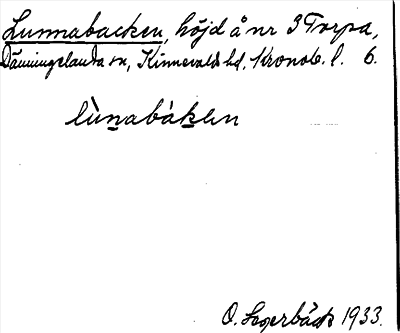 Lunnabacken, höjd å nr 3 Torpa,
Dänningelanda sn, Kinnevalds hd, Kronob. l. 6.
lùnabáken
O. Segerbäck 1933.